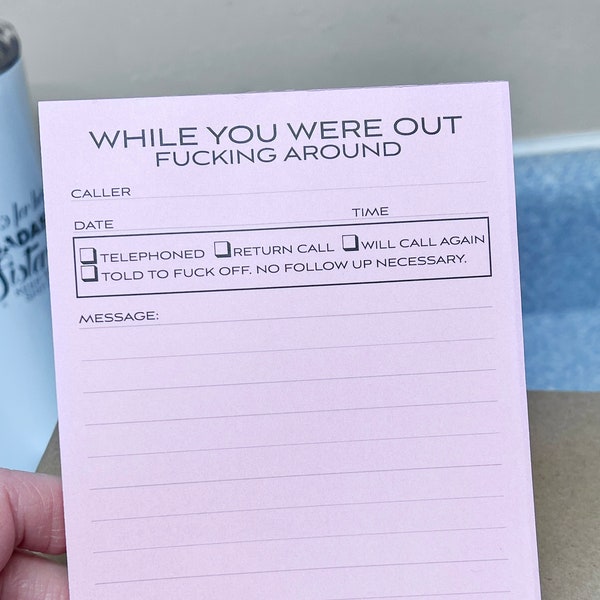 WHILE YOU WERE OUT
FUCKING AROUND
CALLER
DATE TIME
TELEPHONED RETURN CALL WILL CALL AGAIN
TOLD TO FUCK OFF. NO FOLLOW UP NECESSARY.
MESSAGE:
Sister